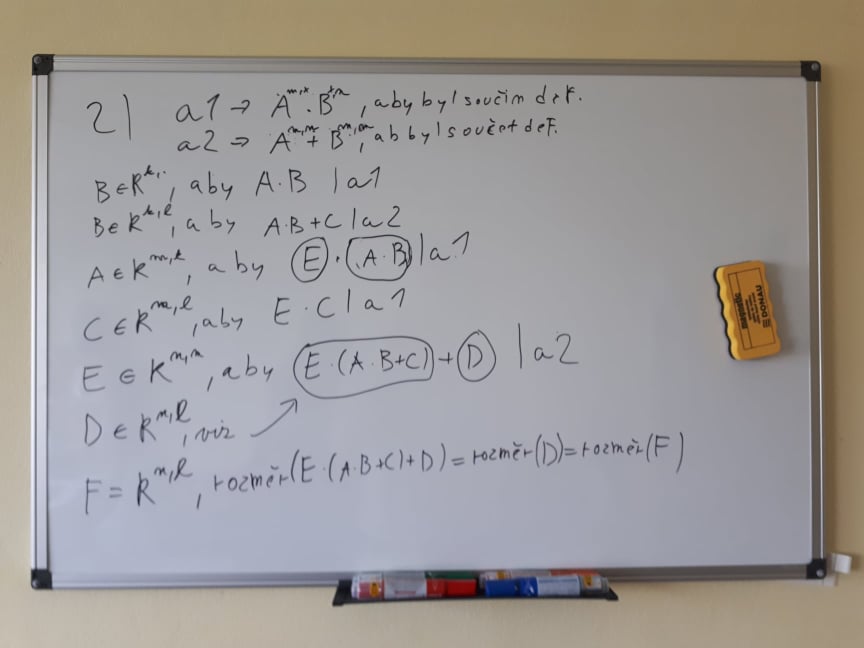 2) a1 → A^{m,k} · B^{k,n}, aby byl součin def.
a2 → A^{m,n} + B^{m,n}, ab byl součet def.
B ∈ R^{k,.}, aby A·B | a1
B ∈ R^{k,l}, aby A·B+C | a2
A ∈ R^{m,k}, aby E · (A·B) | a1
C ∈ R^{m,l}, aby E·C | a1
E ∈ R^{n,m}, aby E·(A·B+C) + D | a2
D ∈ R^{n,l}, viz
F = R^{n,l}, rozměr(E·(A·B+C)+D) = rozměr(D) = rozměr(F)
magnetic
DONAU